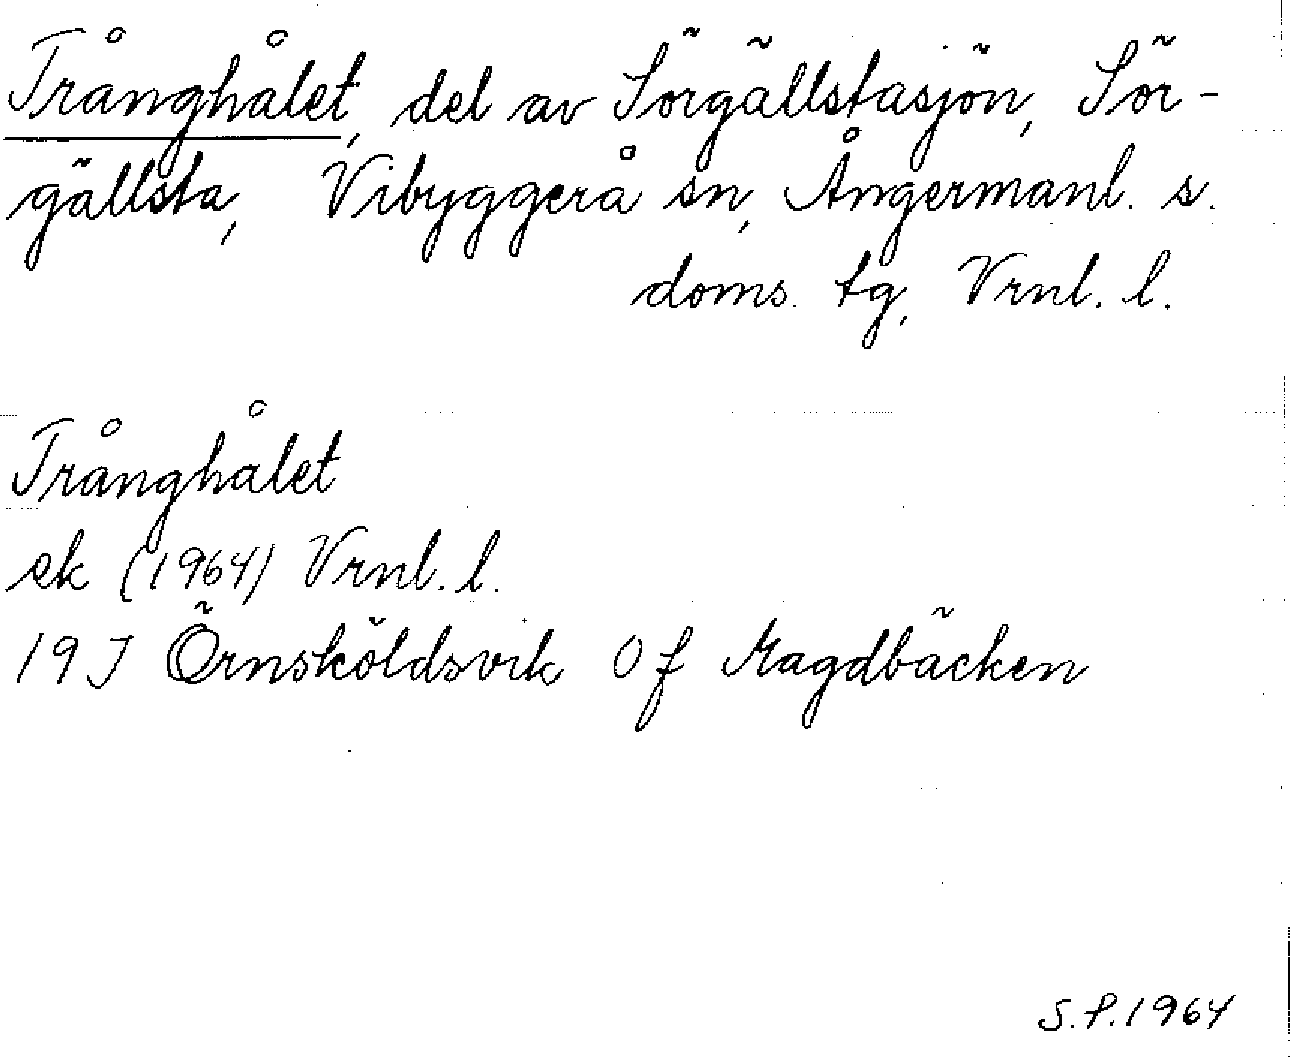 Trånghålet, del av Sörgällstasjön, Sör-
gällsta, Vibyggerå sn, Ångermanl. s.
doms. tg, Vrnl. l.
Trånghålet
ek (1964) Vrnl. l.
19 J Örnsköldsvik 0 f Magdbäcken
S.P. 1964